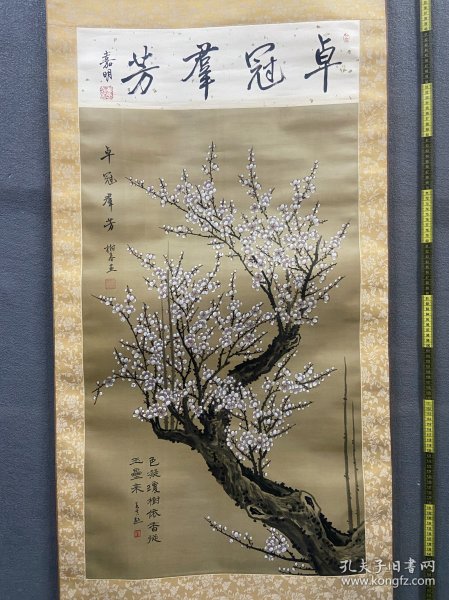 卓冠羣芳
嘉明
卓冠群芳
色凝瓊樹依香從
玉壘來
孔夫子旧书网
www.kongfz.com